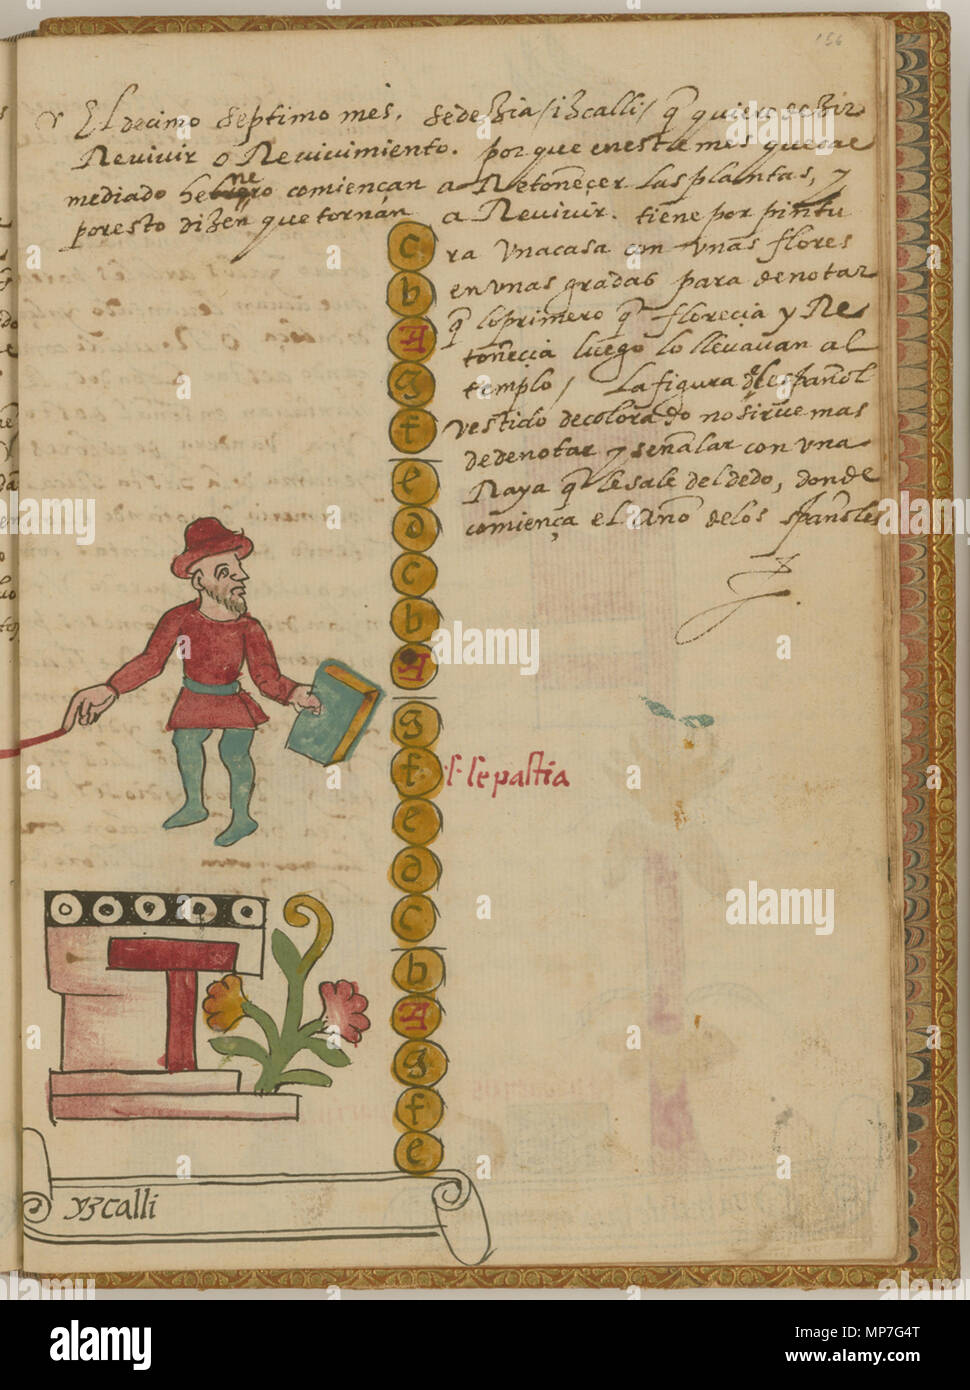 156
El decimo septimo mes. se dezia /izcalli/ q̃ quiere dezir
Revivir o Revivimiento. por que en este mes que cae
mediado henero comiençan a Retoñeçer las plantas, y
por esto dizen que tornan a Revivir. tiene por pintu
ra una casa con unas flores
en unas gradas para denotar
q̃ lo primero q̃ florecia y Re
toñecia luego lo llevavan al
templo / La figura del español
vestido de colorado no sirve mas
de denotar y señalar con una
Raya q̃ le sale del dedo, donde
comiença el año de los españoles
c
b
A
g
f
e
d
c
b
A
g
f
e
d
c
b
A
g
f
e
s. sepastia
yzcalli
alamy
Image ID: MP7G4T
www.alamy.com